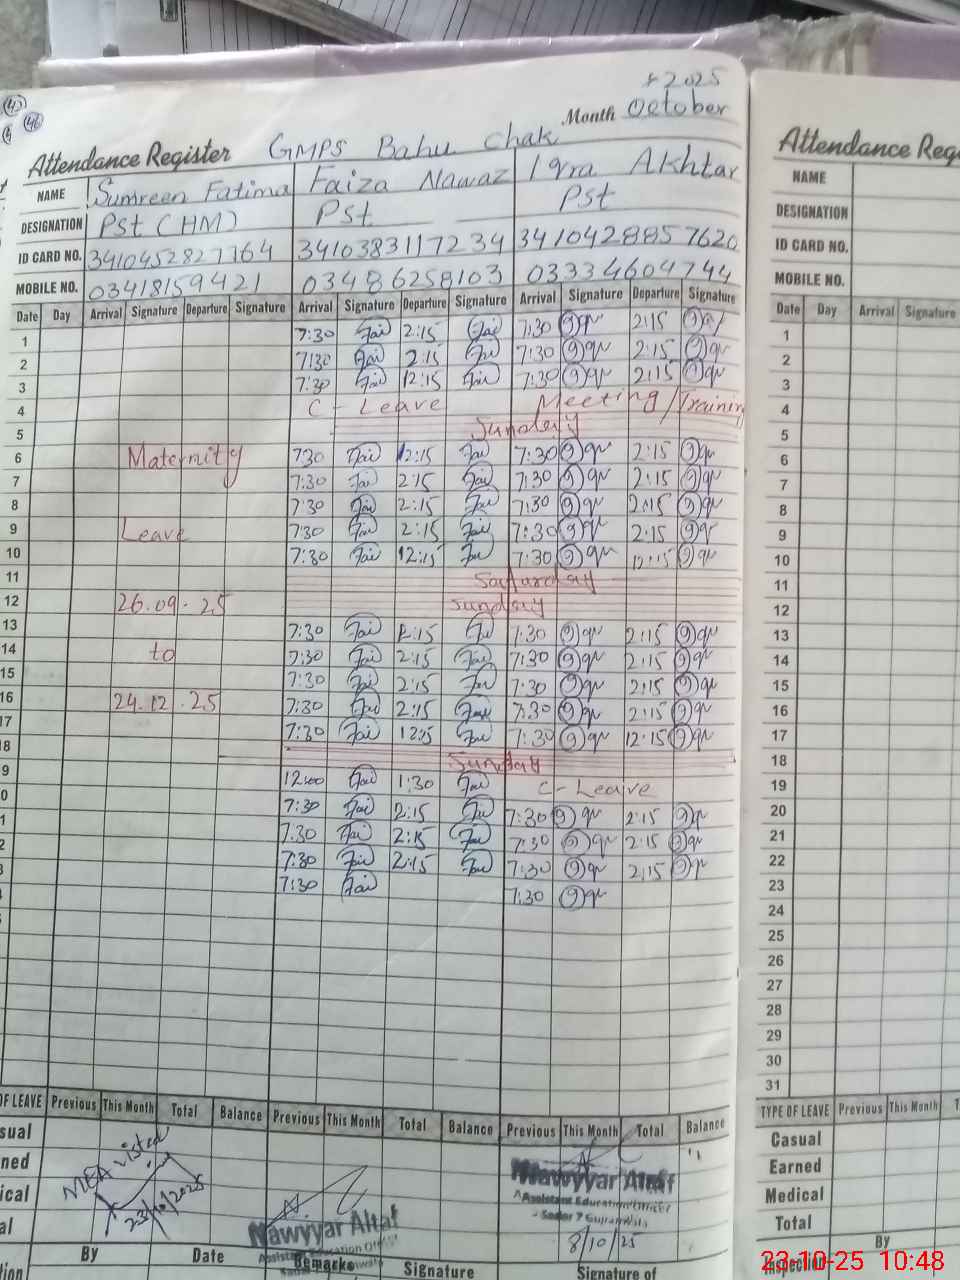 * 2025
Month October
Attendance Register GMPS Bahu Chak
NAME Sumreen Fatima Faiza Nawaz Iqra Akhtar
DESIGNATION Pst (HM) Pst Pst
ID CARD NO. 3410452827764 3410383117234 3410428857620
MOBILE NO. 03418159421 03486258103 03334604744
Date Day Arrival Signature Departure Signature Arrival Signature Departure Signature Arrival Signature Departure Signature
1 7:30 Fai 2:15 Fai 7:30 Iqr 2:15 Iqr
2 7:30 Fai 2:15 Fai 7:30 Iqr 2:15 Iqr
3 7:30 Fai 12:15 Fai 7:30 Iqr 2:15 Iqr
4 C-Leave Meeting/Training
5 Sunday
6 Maternity 7:30 Fai 2:15 Fai 7:30 Iqr 2:15 Iqr
7 7:30 Fai 2:15 Fai 7:30 Iqr 2:15 Iqr
8 7:30 Fai 2:15 Fai 7:30 Iqr 2:15 Iqr
9 Leave 7:30 Fai 2:15 Fai 7:30 Iqr 2:15 Iqr
10 7:30 Fai 12:15 Fai 7:30 Iqr 12:15 Iqr
11 Saturday
12 26.09.25 Sunday
13 7:30 Fai 2:15 Fai 7:30 Iqr 2:15 Iqr
14 to 7:30 Fai 2:15 Fai 7:30 Iqr 2:15 Iqr
15 7:30 Fai 2:15 Fai 7:30 Iqr 2:15 Iqr
16 24.12.25 7:30 Fai 2:15 Fai 7:30 Iqr 2:15 Iqr
17 7:30 Fai 12:15 Fai 7:30 Iqr 12:15 Iqr
8 Sunday
9 12:00 Fai 1:30 Fai C-Leave
0 7:30 Fai 2:15 Fai 7:30 Iqr 2:15 Iqr
1 7:30 Fai 2:15 Fai 7:30 Iqr 2:15 Iqr
2 7:30 Fai 2:15 Fai 7:30 Iqr 2:15 Iqr
3 7:30 Fai 7:30 Iqr
OF LEAVE Previous This Month Total Balance Previous This Month Total Balance Previous This Month Total Balance
sual
ned
ical
al
MEA visited
23/10/2025
Nawyyar Altaf
Assistant Education Officer
Nawyyar Altaf
Assistant Education Officer
Sador 7 Gujranwala
8/10/25
By Date Remarks Signature Signature of
tion
Attendance Reg
NAME
DESIGNATION
ID CARD NO.
MOBILE NO.
Date Day Arrival Signature
1
2
3
4
5
6
7
8
9
10
11
12
13
14
15
16
17
18
19
20
21
22
23
24
25
26
27
28
29
30
31
TYPE OF LEAVE Previous This Month
Casual
Earned
Medical
Total
By
Inspection
23-10-25 10:48